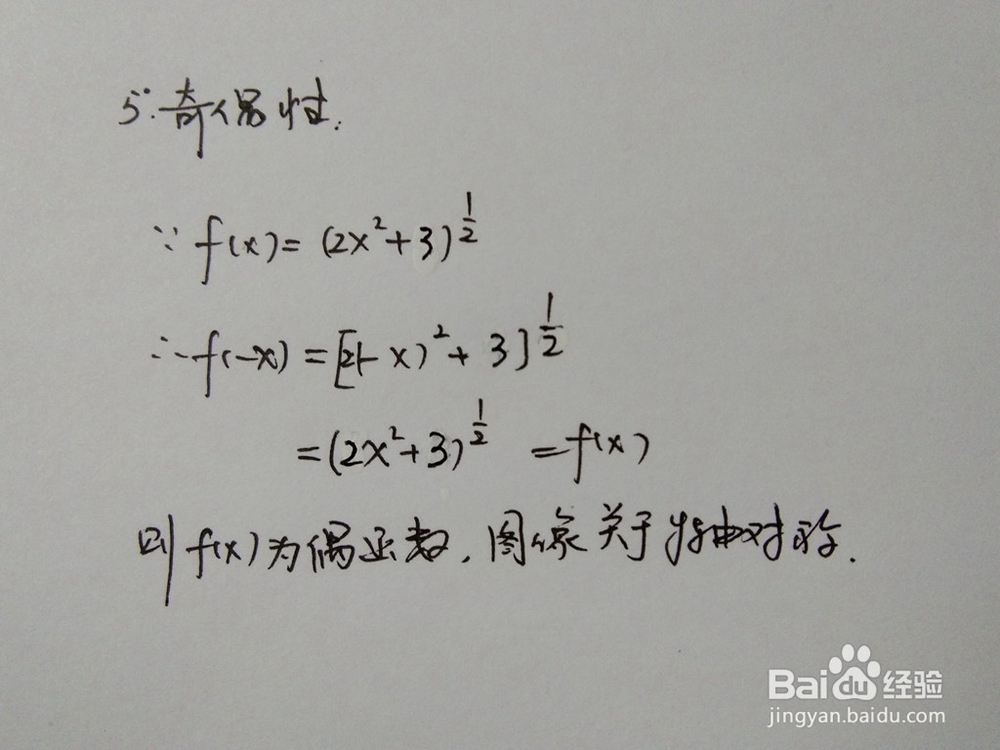 5.奇偶性.
∵ f(x)=(2x²+3)^½
∴ f(-x)=[2(-x)²+3]^½
=(2x²+3)^½ =f(x)
则f(x)为偶函数,图像关于y轴对称.
Baidu经验
jingyan.baidu.com